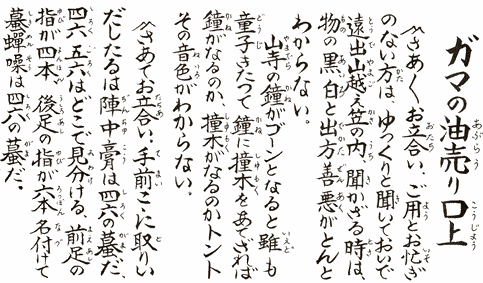 ガマの油売り口上
〽さあ〱お立合い、ご用とお忙ぎ
のない方は、ゆっくりと聞いておいで
遠出山越え笠の内、聞かざる時は、
物の黒白と出方善悪がとんと
わからない。
山寺の鐘がゴーンとなると雖も
童子きたって鐘に撞木をあてざれば
鐘がなるのか、撞木がなるのかトント
その音色がわからない。
〽さあてお立合い、手前こゝに取りい
だしたるは陣中膏は四六の蟇だ、
四六、五六はどこで見分ける、前足の
指が四本、後足の指が六本名付けて
蟇蟬噪は四六の蟇だ、